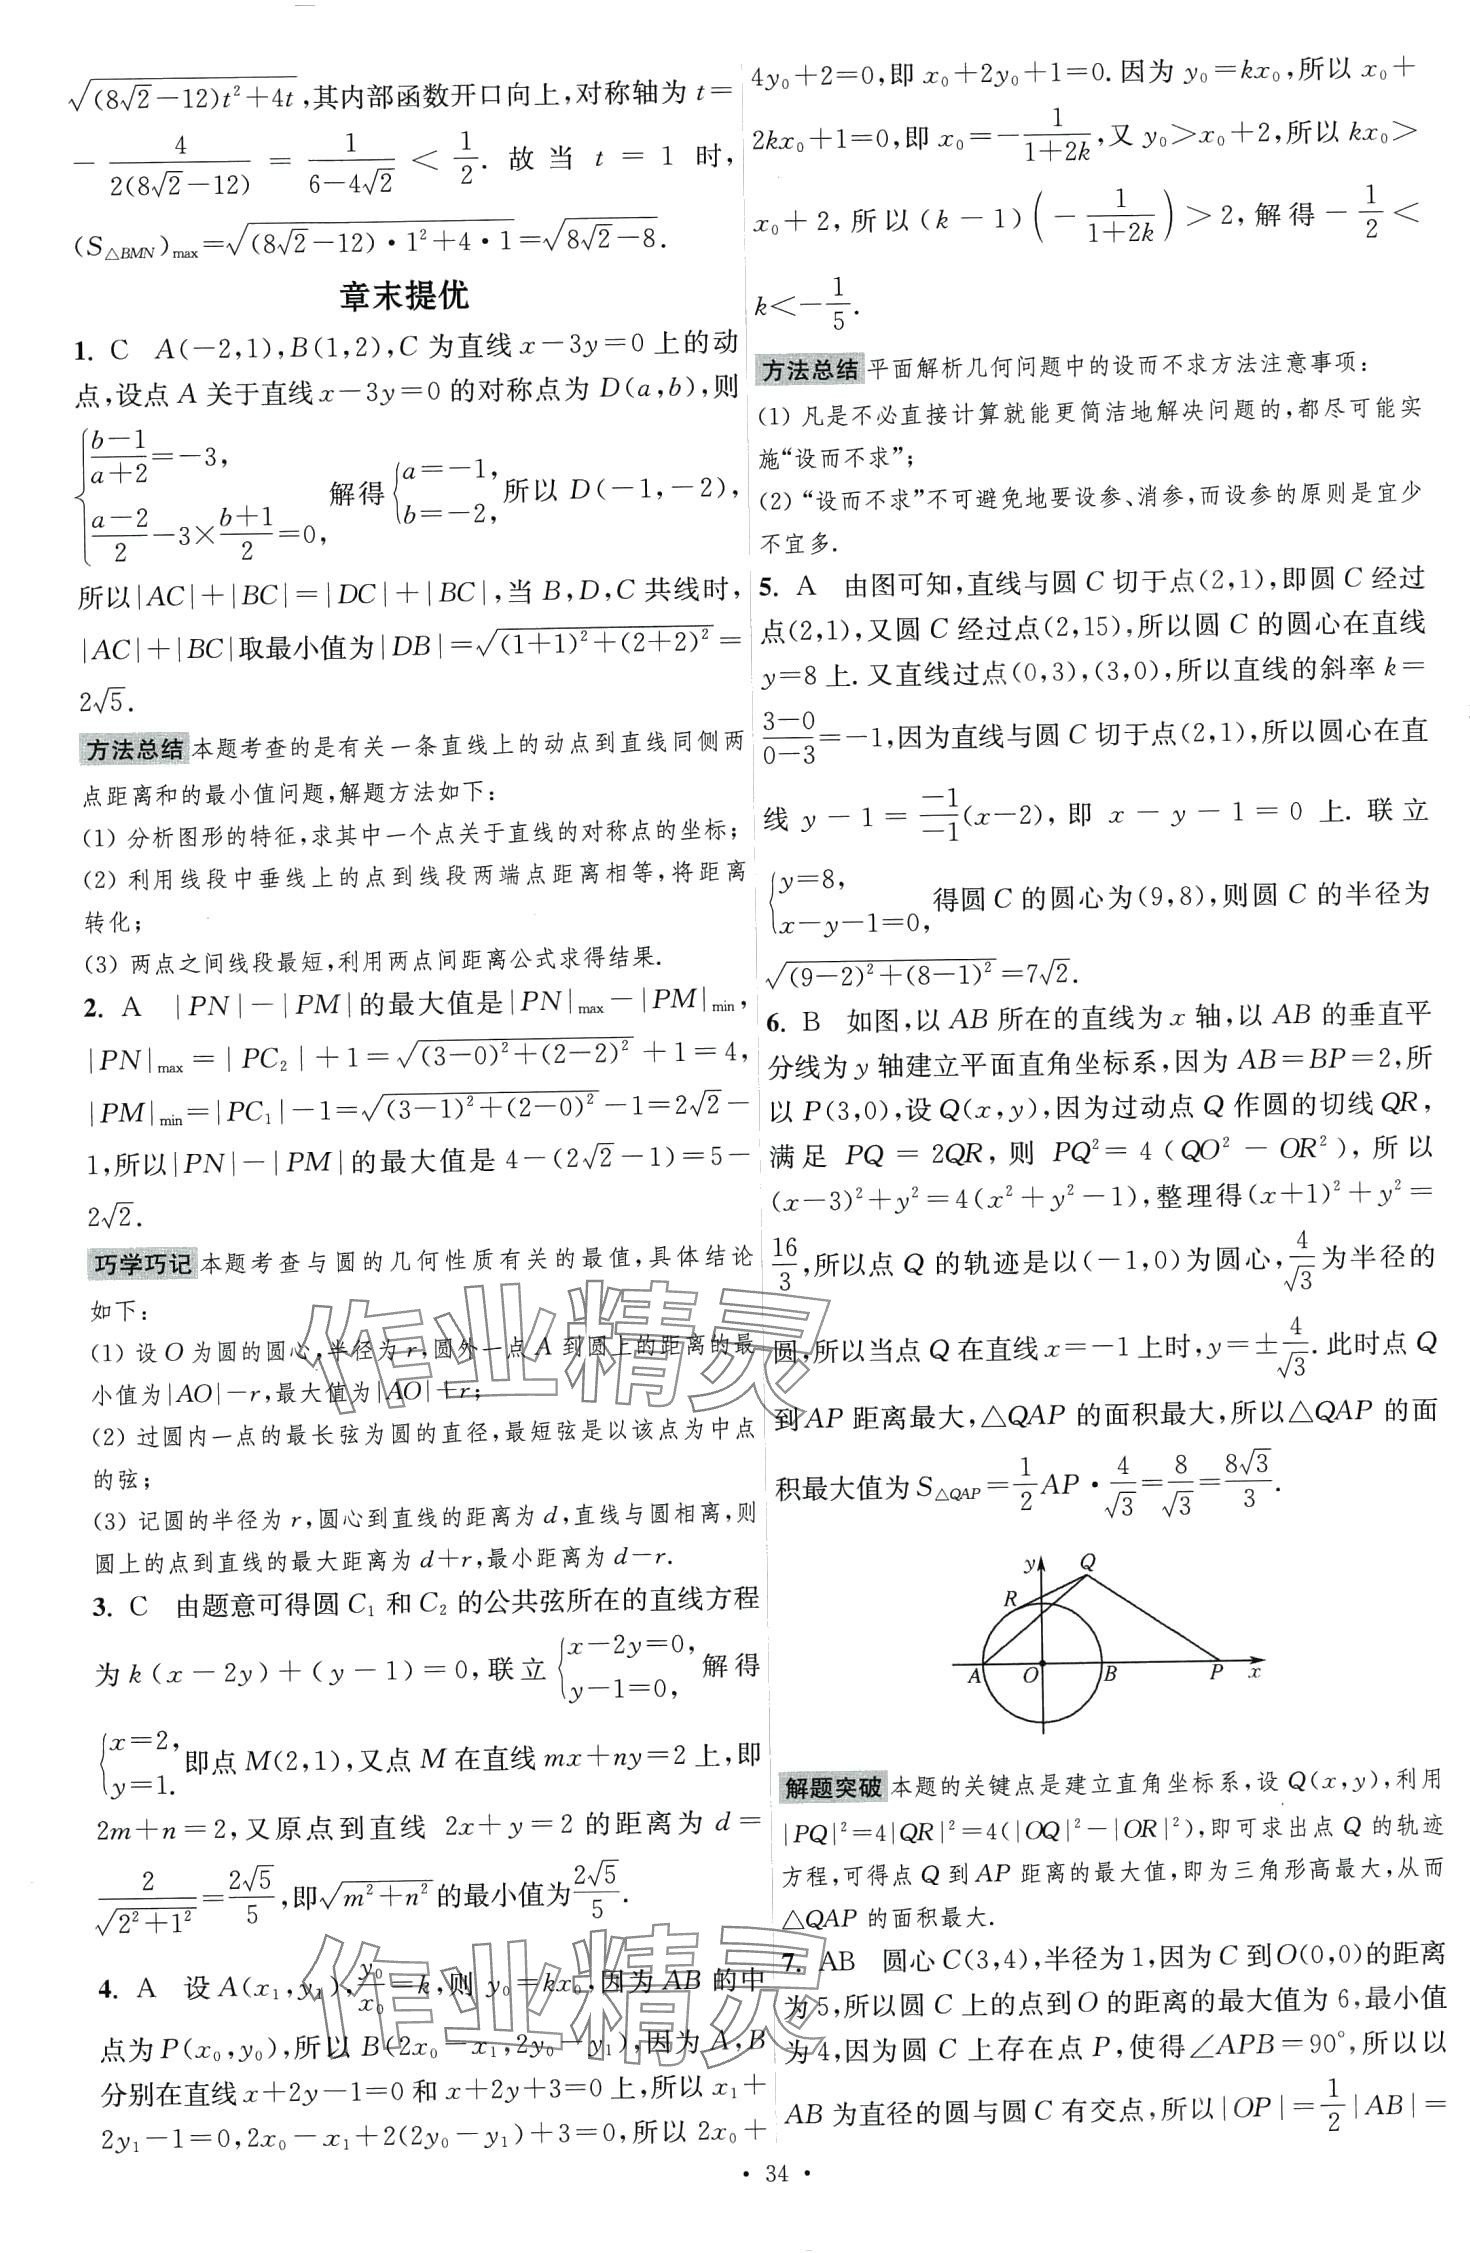 √((8√2−12)t²+4t),其内部函数开口向上,对称轴为 t=
−4/(2(8√2−12)) = 1/(6−4√2) < 1/2. 故当 t=1 时,
(S△BMN)max=√((8√2−12)·1²+4·1)=√(8√2−8).
章末提优
1. C A(−2,1),B(1,2),C 为直线 x−3y=0 上的动
点,设点 A 关于直线 x−3y=0 的对称点为 D(a,b),则
{(b−1)/(a+2)=−3, (a−2)/2−3×(b+1)/2=0, 解得{a=−1, b=−2, 所以 D(−1,−2),
所以|AC|+|BC|=|DC|+|BC|,当 B,D,C 共线时,
|AC|+|BC|取最小值为|DB|=√((1+1)²+(2+2)²)=
2√5.
方法总结 本题考查的是有关一条直线上的动点到直线同侧两
点距离和的最小值问题,解题方法如下:
(1) 分析图形的特征,求其中一个点关于直线的对称点的坐标;
(2) 利用线段中垂线上的点到线段两端点距离相等,将距离
转化;
(3) 两点之间线段最短,利用两点间距离公式求得结果.
2. A |PN|−|PM|的最大值是|PN|max−|PM|min,
|PN|max=|PC₂|+1=√((3−0)²+(2−2)²)+1=4,
|PM|min=|PC₁|−1=√((3−1)²+(2−0)²)−1=2√2−
1,所以|PN|−|PM|的最大值是 4−(2√2−1)=5−
2√2.
巧学巧记 本题考查与圆的几何性质有关的最值,具体结论
如下:
(1) 设 O 为圆的圆心,半径为 r,圆外一点 A 到圆上的距离的最
小值为|AO|−r,最大值为|AO|+r;
(2) 过圆内一点的最长弦为圆的直径,最短弦是以该点为中点
的弦;
(3) 记圆的半径为 r,圆心到直线的距离为 d,直线与圆相离,则
圆上的点到直线的最大距离为 d+r,最小距离为 d−r.
3. C 由题意可得圆 C₁ 和 C₂ 的公共弦所在的直线方程
为 k(x−2y)+(y−1)=0,联立{x−2y=0, y−1=0, 解得
{x=2, y=1. 即点 M(2,1),又点 M 在直线 mx+ny=2 上,即
2m+n=2,又原点到直线 2x+y=2 的距离为 d=
2/√(2²+1²)=2√5/5,即√(m²+n²)的最小值为2√5/5.
4. A 设 A(x₁,y₁),y₀/x₀=k,则 y₀=kx₀,因为 AB 的中
点为 P(x₀,y₀),所以 B(2x₀−x₁,2y₀−y₁),因为 A,B
分别在直线 x+2y−1=0 和 x+2y+3=0 上,所以 x₁+
2y₁−1=0,2x₀−x₁+2(2y₀−y₁)+3=0,所以 2x₀+
4y₀+2=0,即 x₀+2y₀+1=0.因为 y₀=kx₀,所以 x₀+
2kx₀+1=0,即 x₀=−1/(1+2k),又 y₀>x₀+2,所以 kx₀>
x₀+2,所以(k−1)(−1/(1+2k))>2,解得−1/2<
k<−1/5.
方法总结 平面解析几何问题中的设而不求方法注意事项:
(1) 凡是不必直接计算就能更简洁地解决问题的,都尽可能实
施“设而不求”;
(2) “设而不求”不可避免地要设参、消参,而设参的原则是宜少
不宜多.
5. A 由图可知,直线与圆 C 切于点(2,1),即圆 C 经过
点(2,1),又圆 C 经过点(2,15),所以圆 C 的圆心在直线
y=8 上.又直线过点(0,3),(3,0),所以直线的斜率 k=
(3−0)/(0−3)=−1,因为直线与圆 C 切于点(2,1),所以圆心在直
线 y−1=(−1)/(−1)(x−2),即 x−y−1=0 上.联立
{y=8, x−y−1=0, 得圆 C 的圆心为(9,8),则圆 C 的半径为
√((9−2)²+(8−1)²)=7√2.
6. B 如图,以 AB 所在的直线为 x 轴,以 AB 的垂直平
分线为 y 轴建立平面直角坐标系,因为 AB=BP=2,所
以 P(3,0),设 Q(x,y),因为过动点 Q 作圆的切线 QR,
满足 PQ=2QR,则 PQ²=4(QO²−OR²),所以
(x−3)²+y²=4(x²+y²−1),整理得(x+1)²+y²=
16/3,所以点 Q 的轨迹是以(−1,0)为圆心,4/√3为半径的
圆,所以当点 Q 在直线 x=−1 上时,y=±4/√3.此时点 Q
到 AP 距离最大,△QAP 的面积最大,所以△QAP 的面
积最大值为 S△QAP=1/2AP·4/√3=8/√3=8√3/3.
y Q
R
A O B P x
解题突破 本题的关键点是建立直角坐标系,设 Q(x,y),利用
|PQ|²=4|QR|²=4(|OQ|²−|OR|²),即可求出点 Q 的轨迹
方程,可得点 Q 到 AP 距离的最大值,即为三角形高最大,从而
△QAP 的面积最大.
7. AB 圆心 C(3,4),半径为 1,因为 C 到 O(0,0)的距离
为 5,所以圆 C 上的点到 O 的距离的最大值为 6,最小值
为 4,因为圆 C 上存在点 P,使得∠APB=90°,所以以
AB 为直径的圆与圆 C 有交点,所以|OP|=1/2|AB|=
· 34 ·
作业精灵
作业精灵